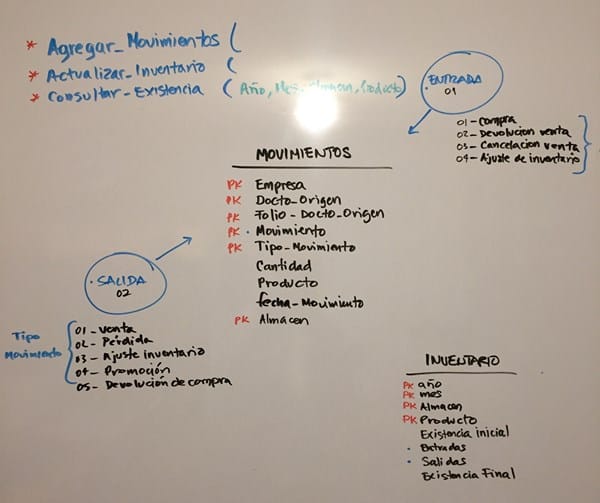 * Agregar_Movimientos (
* Actualizar_Inventario (
* Consultar_Existencia (Año, Mes, Almacen, Producto)
ENTRADA
01
01-Compra
02-Devolucion venta
03-Cancelacion venta
04-Ajuste de inventario
MOVIMIENTOS
PK Empresa
PK Docto_Origen
PK Folio-Docto_Origen
PK · Movimiento
PK Tipo-Movimiento
Cantidad
Producto
fecha_Movimiento
PK Almacen
· SALIDA
02
Tipo
Movimiento
01-Venta
02-Pérdida
03-Ajuste inventario
04-Promoción
05-Devolución de compra
INVENTARIO
PK año
PK mes
PK Almacen
PK Producto
Existencia inicial
· Entradas
· Salidas
Existencia Final